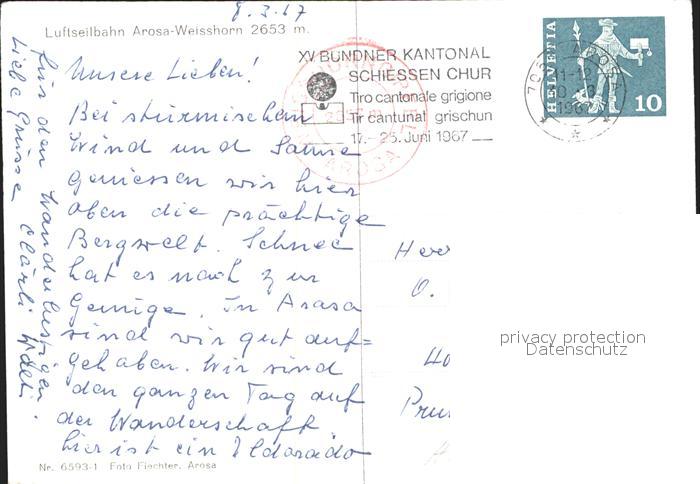 8.3.67
Luftseilbahn Arosa-Weisshorn 2653 m.
XV BÜNDNER KANTONAL
SCHIESSEN CHUR
Tiro cantonale grigione
Tir cantunal grischun
17.-25. Juni 1967
AROSA
1967
HELVETIA
10
Unsere Lieben!
Bei stürmischem
Wind und Sonne
geniessen wir hier
oben die prächtige
Bergwelt. Schnee
hat es noch zur
Genüge. In Arosa
sind wir gut auf=
gehoben. Wir sind
den ganzen Tag auf
der Wanderschaft.
Hier ist ein Eldorado
für den Wanderlustigen.
Liebe Grüsse
Herr
O.
privacy protection
Datenschutz
Nr. 6593-1 Foto Fiechter, Arosa